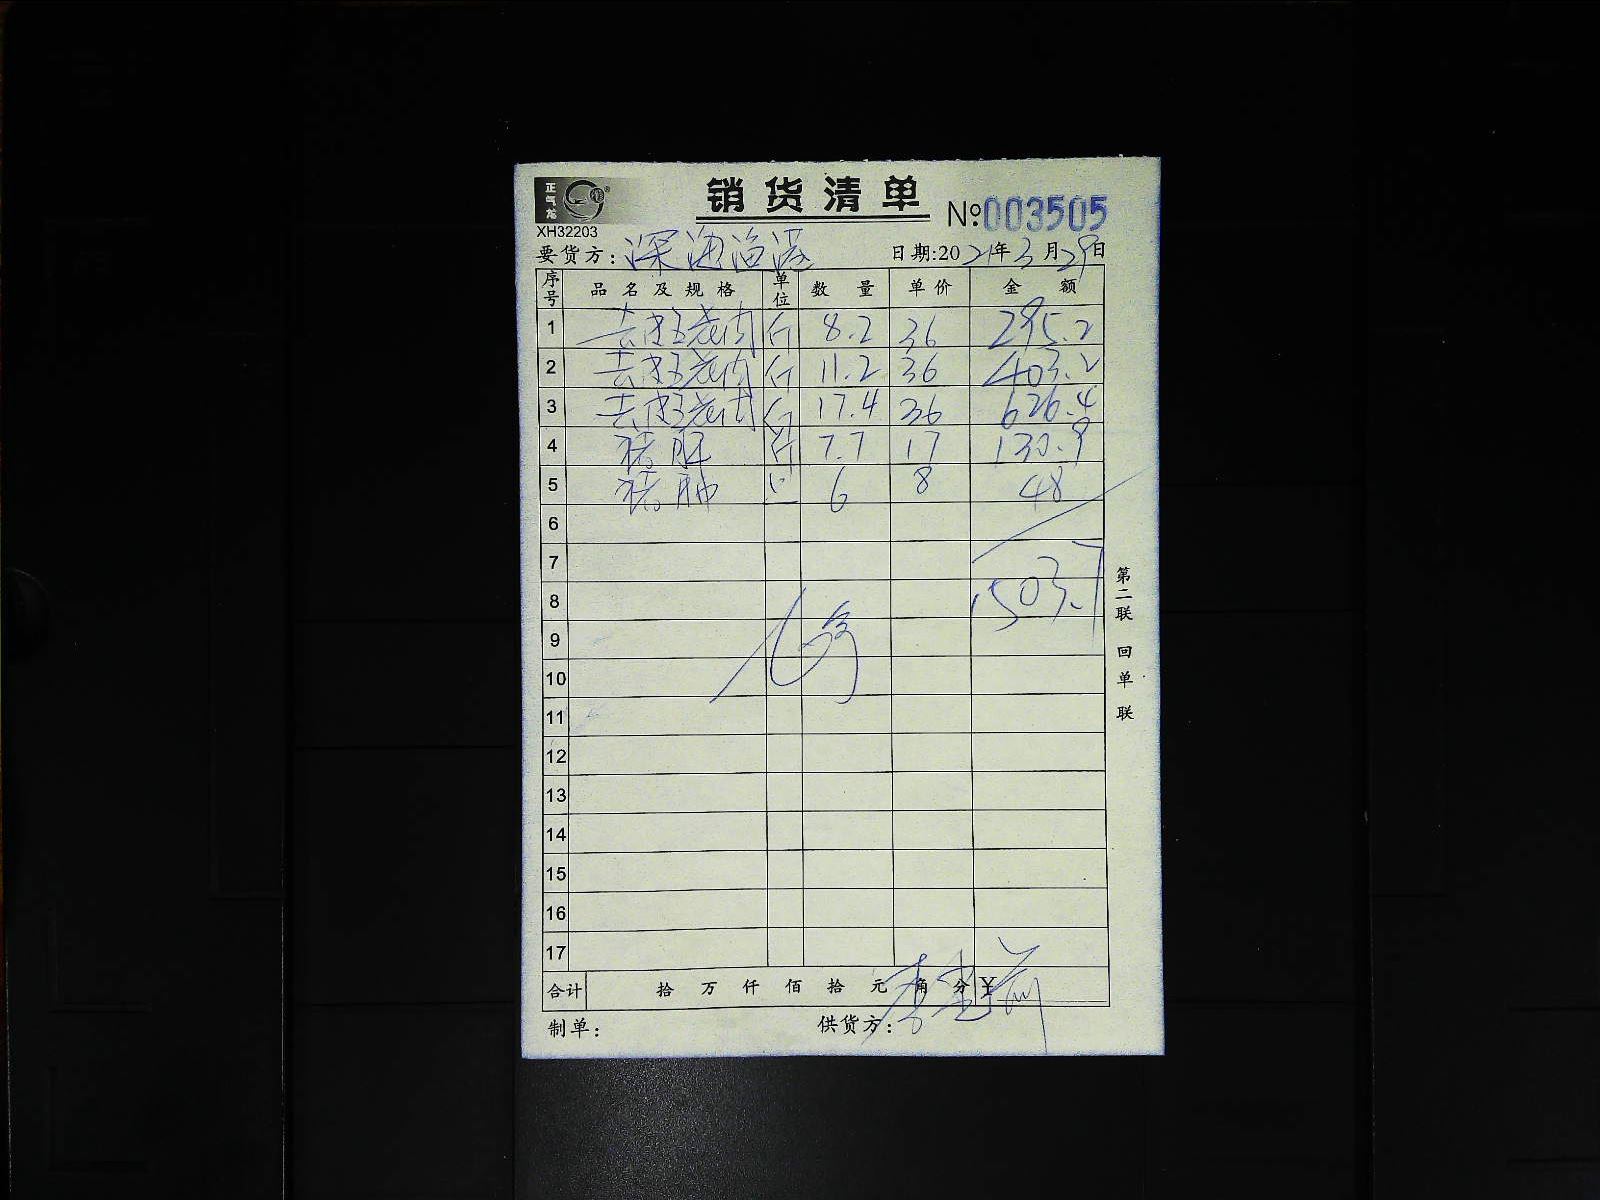 正气龙
XH32203
销货清单
№003505
要货方:深 渔
日期:2021年3月29日
序号 品名及规格 单位 数量 单价 金额
1 去皮五花肉 斤 8.2 36 295.2
2 去皮五花肉 斤 11.2 36 403.2
3 去皮五花肉 斤 17.4 36 626.4
4 猪 斤 7.7 17 130.9
5 猪肺 6 8 48
6
7
8 1503.7
9
10
11
12
13
14
15
16
17
合计 拾万仟佰拾元角分 ¥
制单: 供货方:李
第二联 回单联